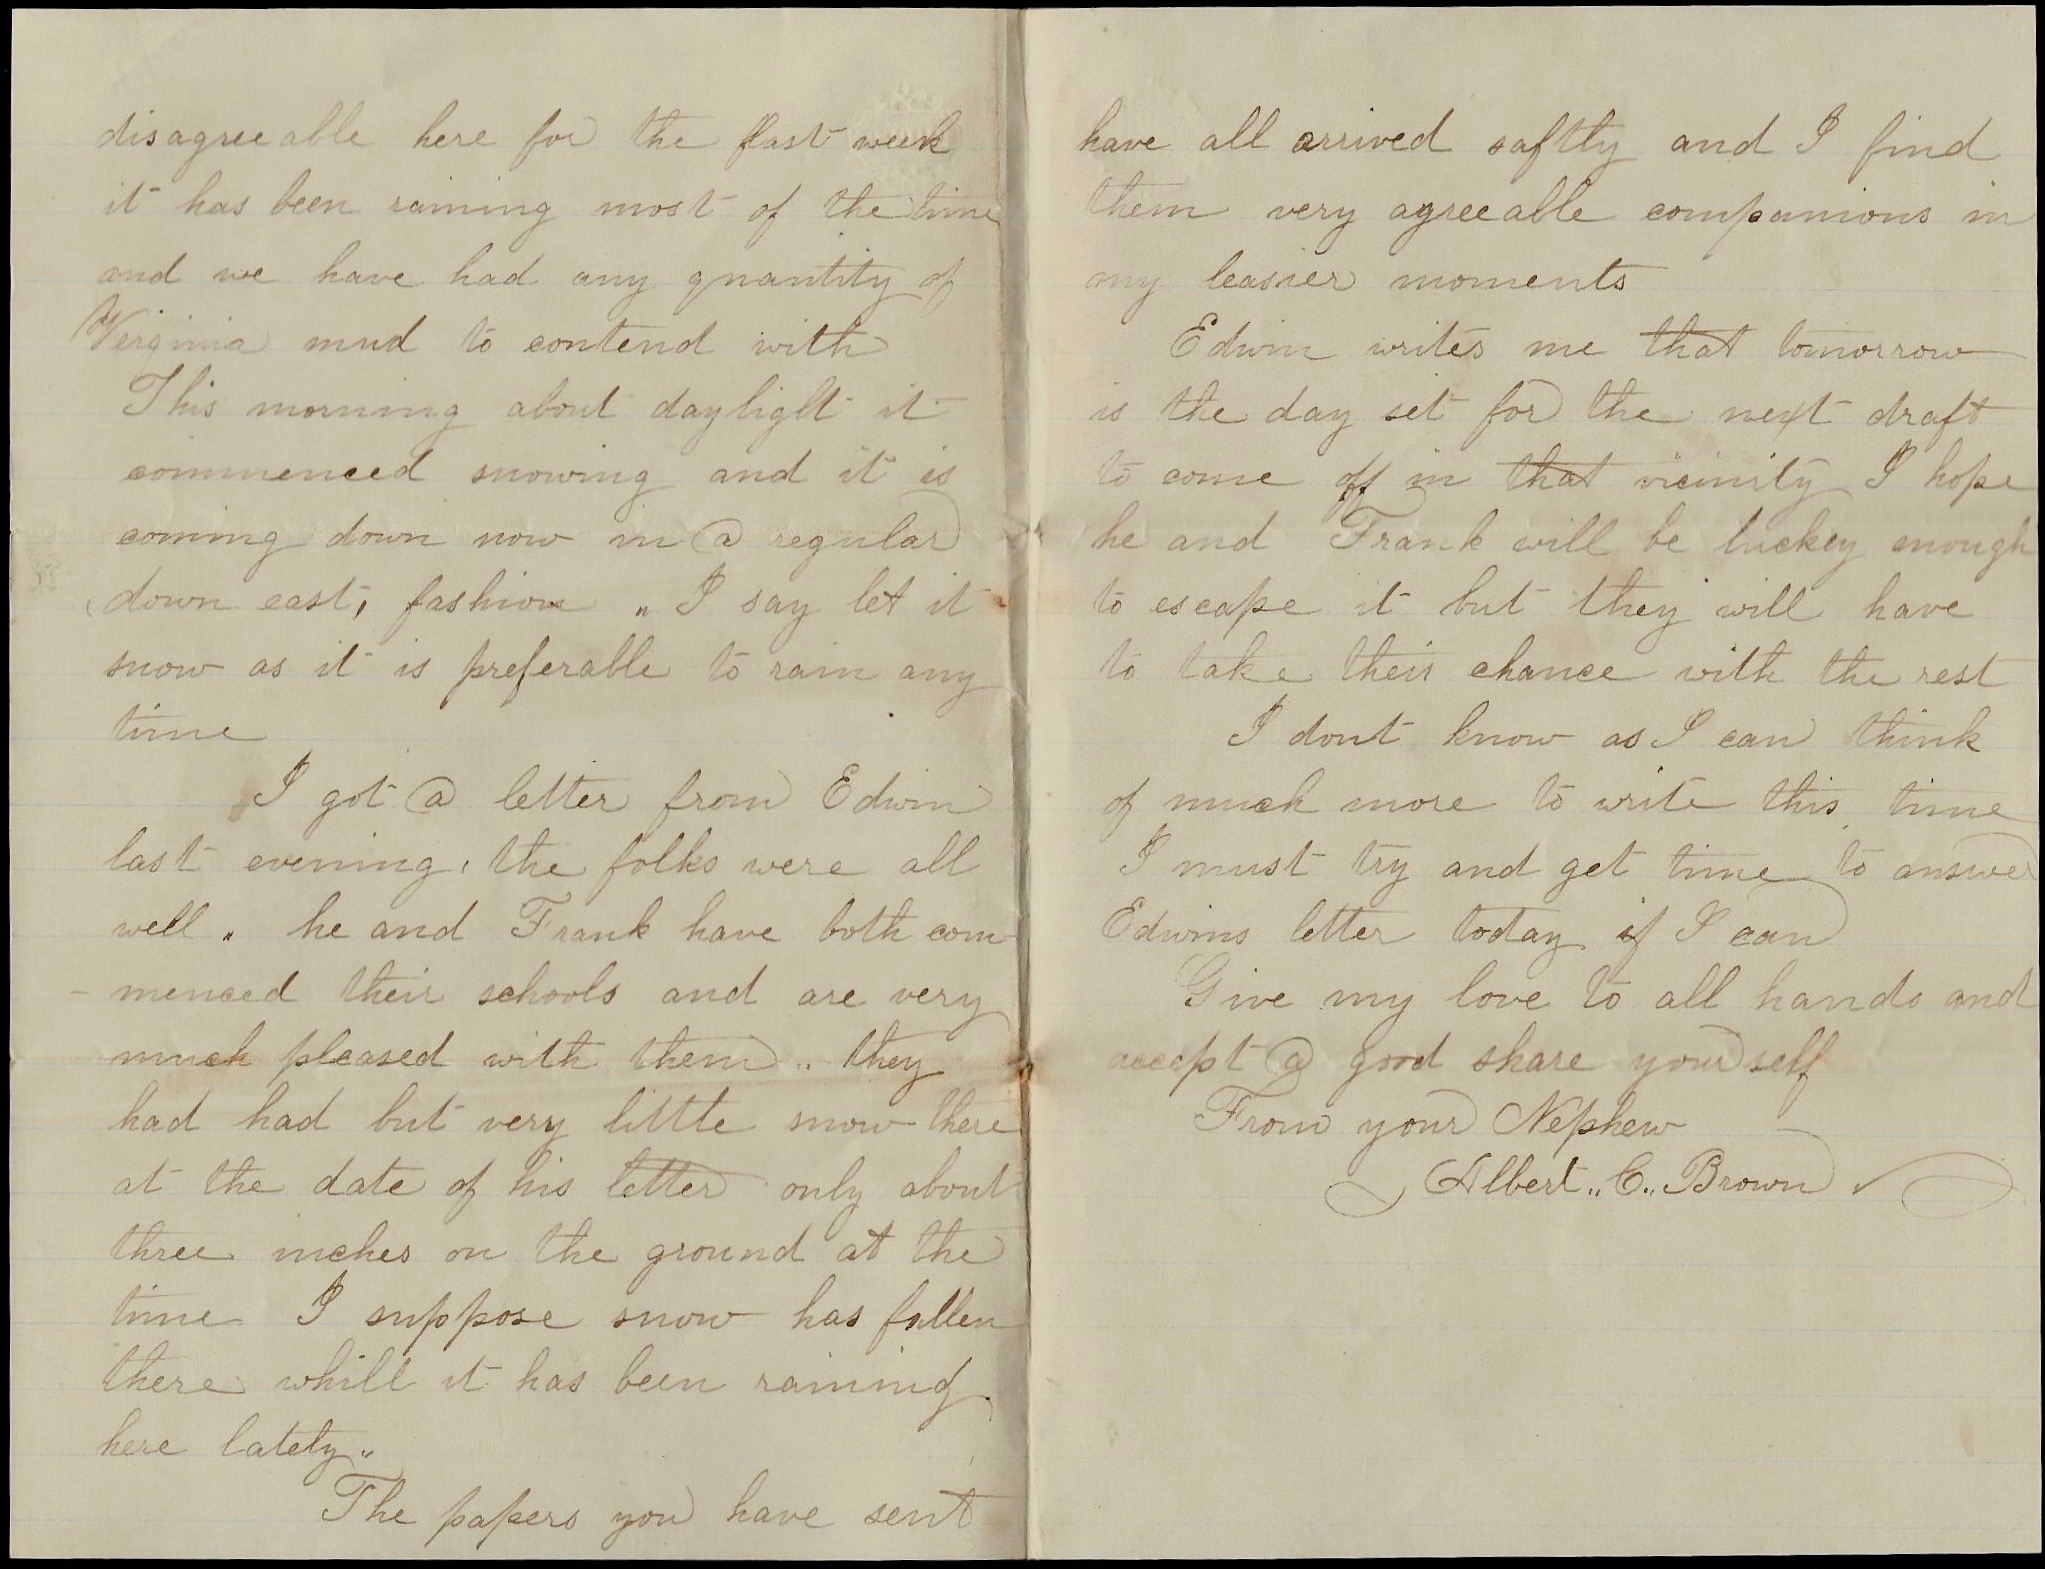 disagreeable here for the past week
it has been raining most of the time
and we have had any quantity of
Virginia mud to contend with
This morning about daylight it
commenced snowing and it is
coming down now in a regular
down east, fashion „ I say let it
snow as it is preferable to rain any
time
I got a letter from Edwin
last evening, the folks were all
well „ he and Frank have both com
- menced their schools and are very
much pleased with them „ they
had had but very little snow there
at the date of his letter only about
three inches on the ground at the
time I suppose snow has fallen
there whill it has been raining
here lately „
The papers you have sent
have all arrived saftly and I find
them very agreeable companions in
my leasier moments
Edwin writes me that tomorrow
is the day set for the next draft
to come off in that vicinity I hope
he and Frank will be luckey enough
to escape it but they will have
to take their chance with the rest
I dont know as I can think
of much more to write this time
I must try and get time to answer
Edwins letter today if I can
Give my love to all hands and
accept a good share yourself
From your Nephew
Albert „ C „ Brown